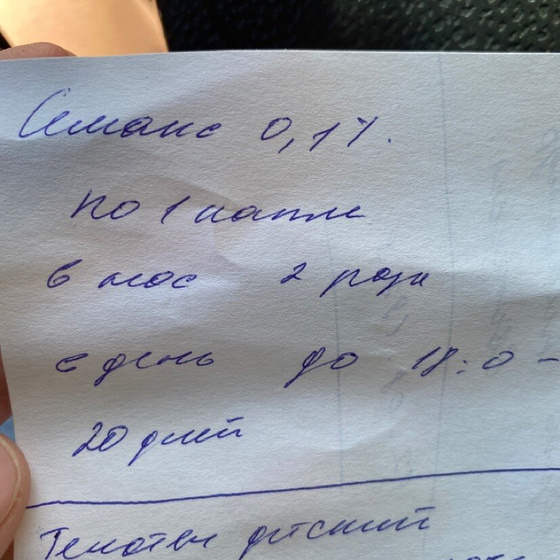 Семакс 0,1%.
по 1 капле
в нос 2 раза
в день до 18:0 -
20 дней
Тенотен детский